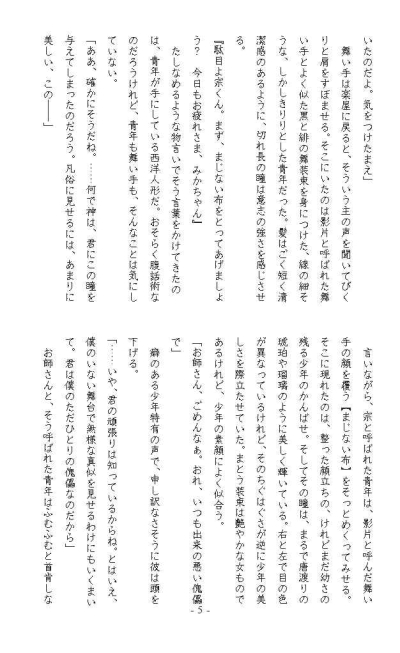 いたのだよ。気をつけたまえ」
　舞い手は楽屋に戻ると、そういう主の声を聞いてびく
りと肩をすぼませる。そこにいたのは影片と呼ばれた舞
い手とよく似た黒と緋の舞装束を身につけた、線の細そ
うな、しかしきりりとした青年だった。髪はごく短く清
潔感のあるように、切れ長の瞳は意志の強さを感じさせ
『駄目よ宗くん。まず、まじない布をとってあげましょ
う？　今日もお疲れさま、みかちゃん』
　たしなめるような物言いでそう言葉をかけてきたの
は、青年が手にしている西洋人形だ。おそらく腹話術な
のだろうけれど、青年も舞い手も、そんなことは気にし
ていない。
「ああ、確かにそうだね。……何で神は、君にこの瞳を
与えてしまったのだろう。凡俗に見せるには、あまりに
美しい、この――」
　言いながら、宗と呼ばれた青年は、影片と呼んだ舞い
手の顔を覆う【まじない布】をそっとめくってみせる。
そこに現れたのは、整った顔立ちの、けれどまだ幼さの
残る少年のかんばせ。そしてその瞳は、まるで唐渡りの
琥珀や瑠璃のように美しく輝いている。右と左で目の色
が異なっているけれど、そのちぐはぐさが逆に少年の美
しさを際立たせていた。まとう装束は艶やかな女もので
あるけれど、少年の素顔によく似合う。
「お師さん、ごめんなぁ。おれ、いつも出来の悪い傀儡
で」
　癖のある少年特有の声で、申し訳なさそうに彼は頭を
下げる。
「……いや、君の頑張りは知っているからね。とはいえ、
僕のいない舞台で無様な真似を見せるわけにもいくまい
て。君は僕のただひとりの傀儡なのだから」
　お師さんと、そう呼ばれた青年はふむふむと首肯しな
- 5 -